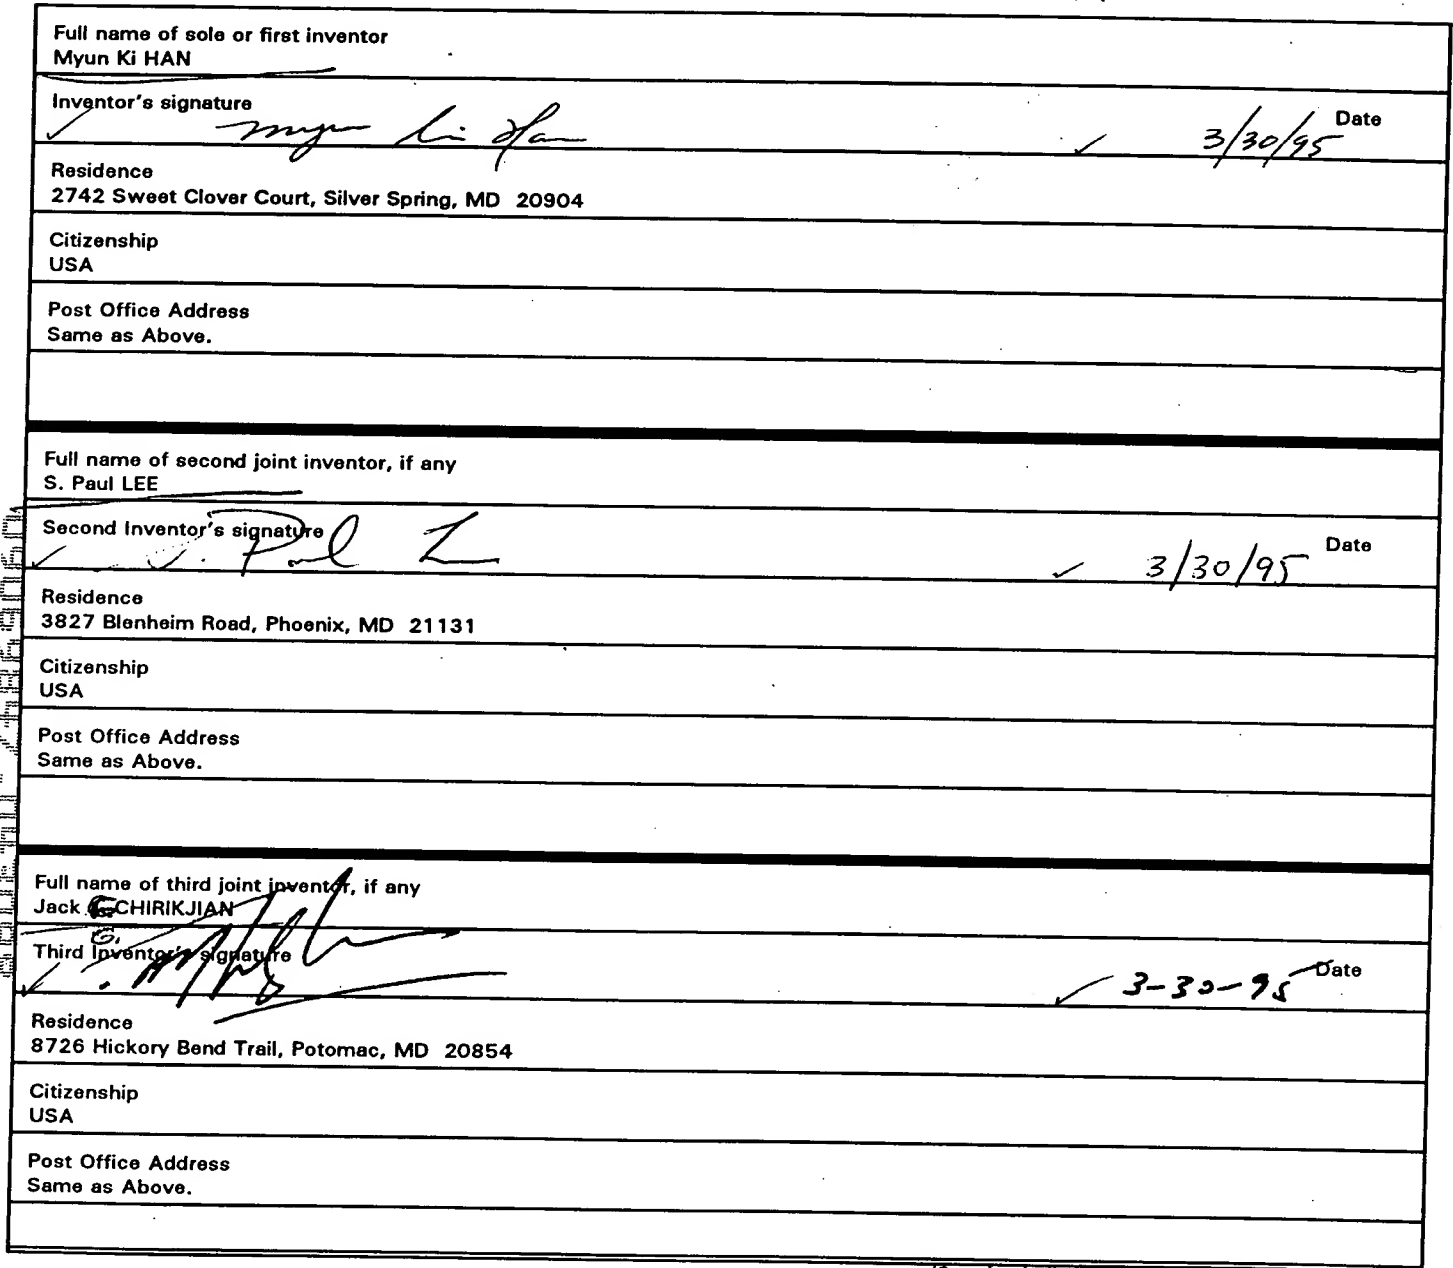 Full name of sole or first inventor
Myun Ki HAN
Inventor's signature
Myun Ki Han
Date
3/30/95
Residence
2742 Sweet Clover Court, Silver Spring, MD 20904
Citizenship
USA
Post Office Address
Same as Above.
Full name of second joint inventor, if any
S. Paul LEE
Second Inventor's signature
S. Paul Lee
Date
3/30/95
Residence
3827 Blenheim Road, Phoenix, MD 21131
Citizenship
USA
Post Office Address
Same as Above.
Full name of third joint inventor, if any
Jack CHIRIKJIAN
G.
Third Inventor's signature
Date
3-30-95
Residence
8726 Hickory Bend Trail, Potomac, MD 20854
Citizenship
USA
Post Office Address
Same as Above.